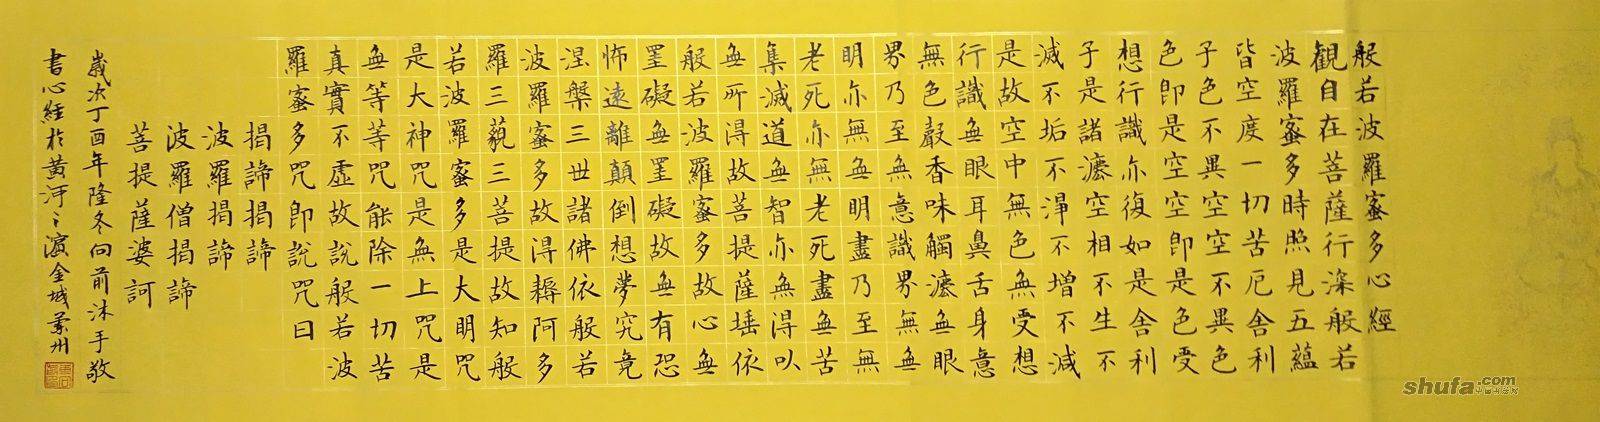 般若波羅蜜多心經
觀自在菩薩行深般若
波羅蜜多時照見五蘊
皆空度一切苦厄舍利
子色不異空空不異色
色即是空空即是色受
想行識亦復如是舍利
子是諸灋空相不生不
滅不垢不淨不增不減
是故空中無色無受想
行識無眼耳鼻舌身意
無色聲香味觸灋無眼
界乃至無意識界無無
明亦無無明盡乃至無
老死亦無老死盡無苦
集滅道無智亦無得以
無所得故菩提薩埵依
般若波羅蜜多故心無
罣礙無罣礙故無有恐
怖遠離顛倒想夢究竟
涅槃三世諸佛依般若
波羅蜜多故得耨阿多
羅三藐三菩提故知般
若波羅蜜多是大明咒
是大神咒是無上咒是
無等等咒能除一切苦
真實不虛故說般若波
羅蜜多咒即說咒曰
揭諦揭諦
波羅揭諦
波羅僧揭諦
菩提薩婆訶
歲次丁酉年隆冬向前沐手敬
書心經於黃河之濱金城蘭州
shufa.com